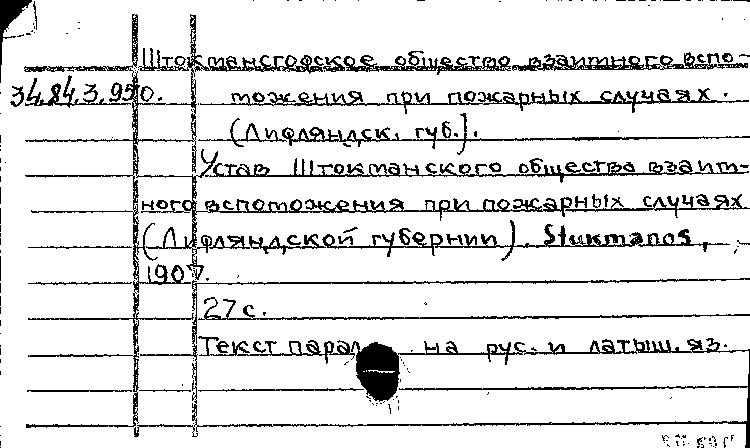 Штокмансгофское общество взаимного вспо-
34.84.3.950. можения при пожарных случаях.
(Лифляндск. губ.).
Устав Штокманского общества взаим-
ного вспоможения при пожарных случаях
(Лифляндской губернии). Stukmanos,
1907.
27 с.
Текст парал на рус. и латыш. яз.